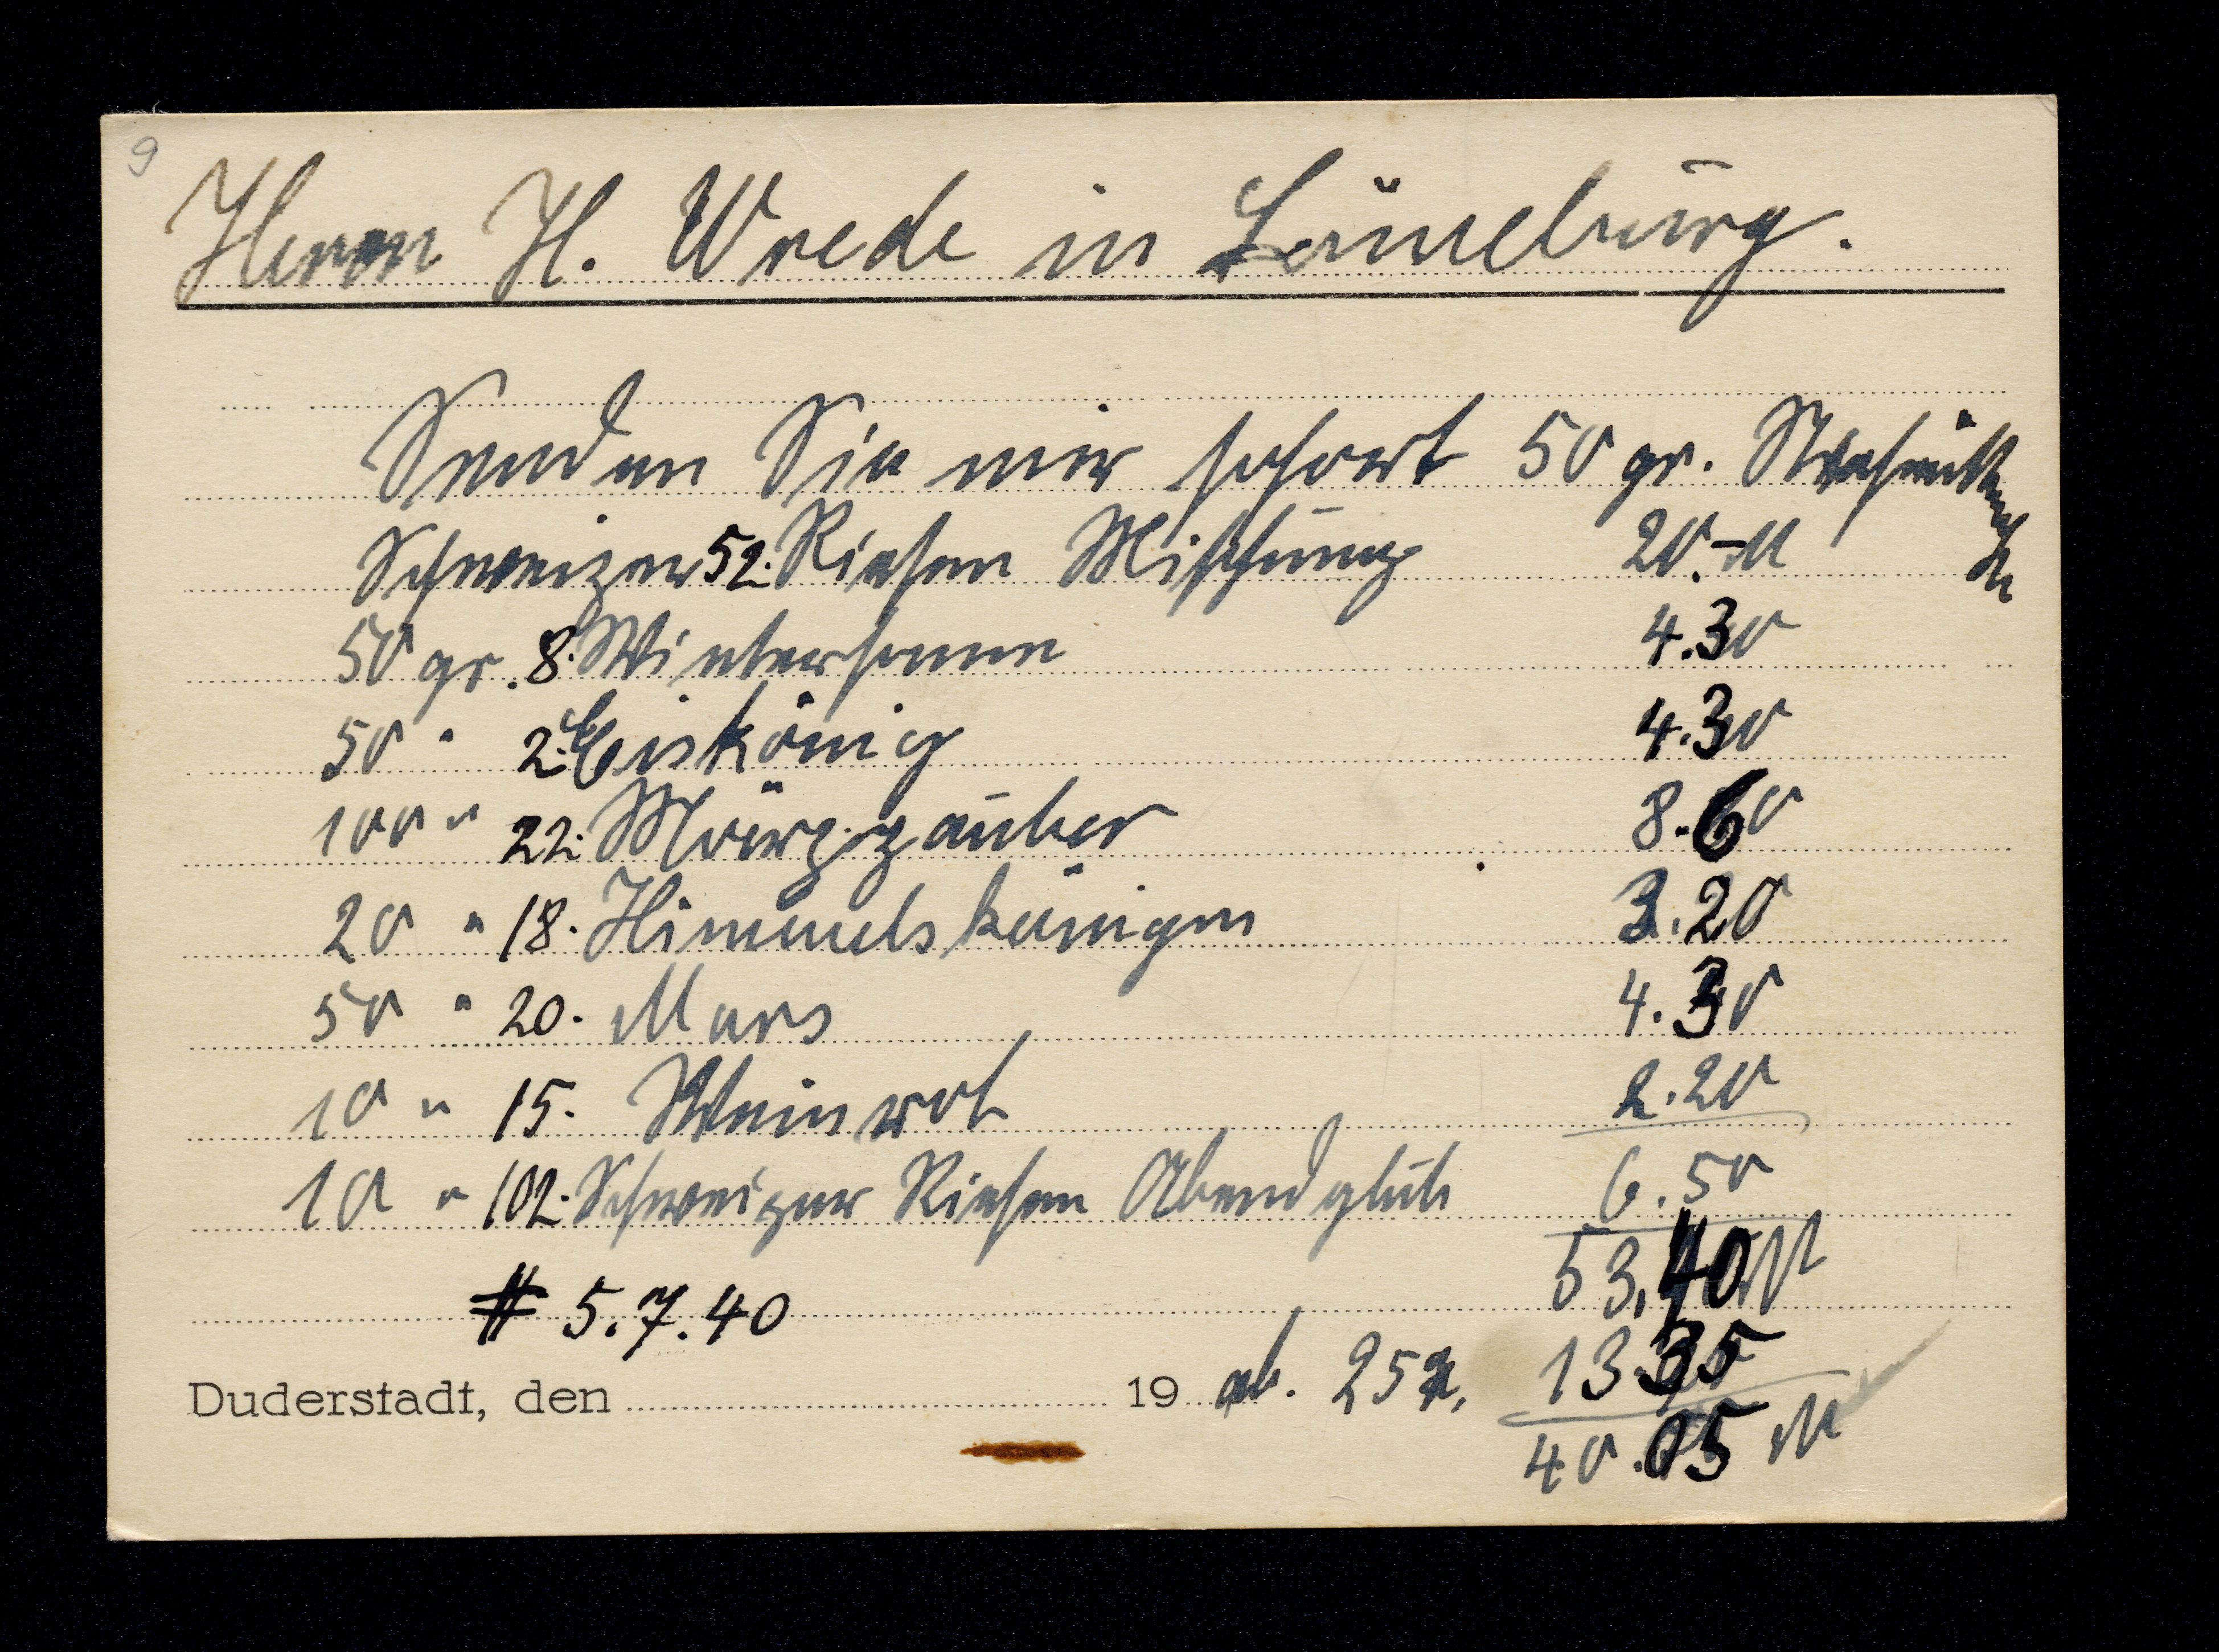 9
Herrn H. Wrede in Lüneburg.
Senden Sie mir sofort 50 gr. Stiefmütterchen
Schweizer 52. Riesen Mischung 20.-M
50 gr. 8. Wintersonne 4.30
50 " 2. Eiskönig 4.30
100 " 22. Märzzauber 8.60
20 " 18. Himmelskönigin 3.20
50 " 20. Mars 4.30
10 " 15. Weinrot 2.20
10 " 102. Schweizer Riesen Abendglut 6.50
53,40 M
# 5.7.40
ab. 25%, 13.35
Duderstadt, den 19
40.05 M